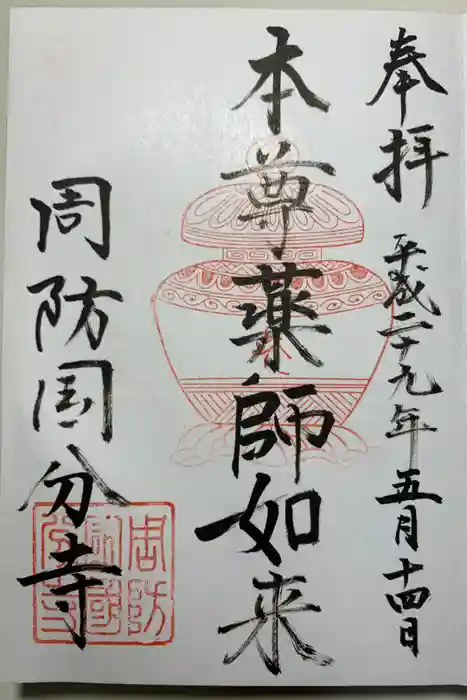 奉拝
平成二十九年五月十四日
本尊薬師如来
周防国分寺
周防
国
分寺